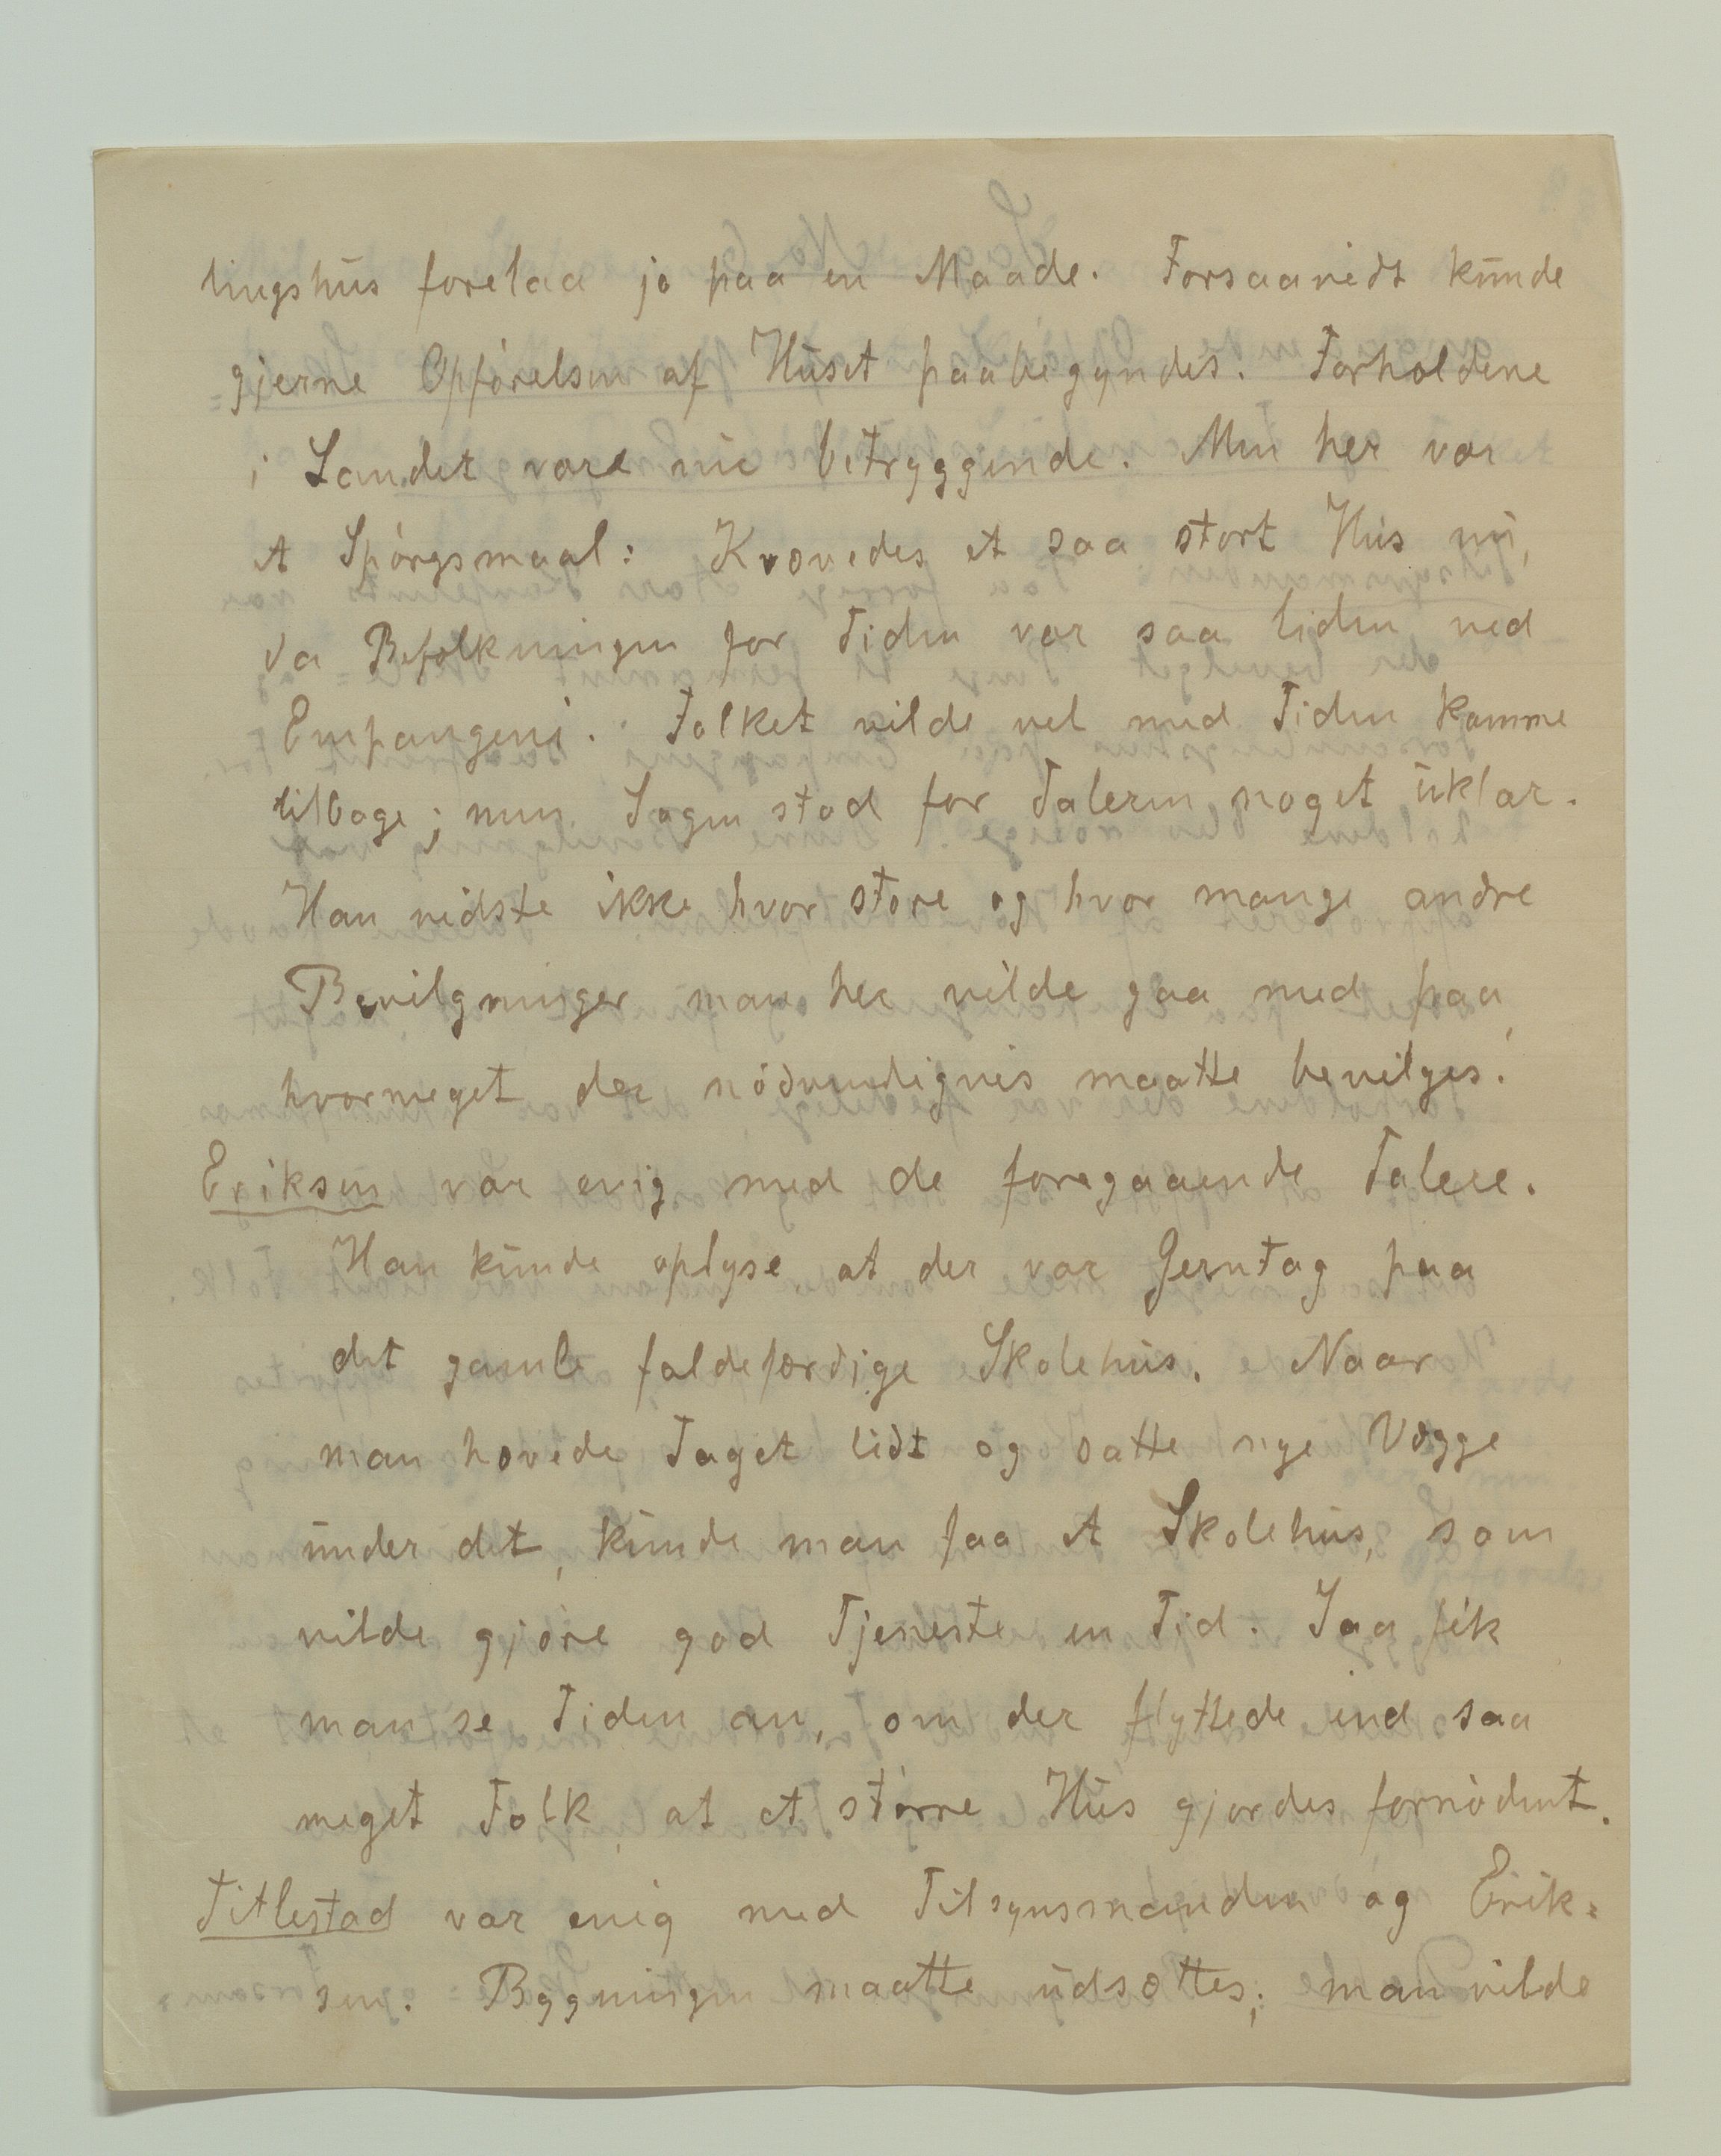 lingshus forelaa jo paa en Maade. Forsaavidt kunde
gjerne Opførelsen af Huset paabegyndes. Forholdene
i Landet vare nu betryggende. Men her var
et Spørgsmaal: Krævedes et saa stort Hus nu,
da Befolkningen for Tiden var saa liden ved
Empangeni. Folket vilde vel med Tiden komme
tilbage; men Sagen stod for Taleren noget uklar.
Han vidste ikke hvor store og hvor mange andre
Bevilgninger man her vilde gaa med paa,
hvormeget der nødvendigvis maatte bevilges.
Eriksen var enig med de foregaaende Talere.
Han kunde oplyse at der var Jerntag paa
det gamle faldefærdige Skolehus. Naar
man hævede Taget lidt og satte nye Vægge
under det, kunde man faa et Skolehus, som
vilde gjøre god Tjeneste en Tid. Saa fik
man se Tiden an, om der flyttede ind saa
meget Folk, at et større Hus gjordes fornødent.
Titlestad var enig med Tilsynsmanden og Erik=
sen. Bygningen maatte udsættes; man vilde